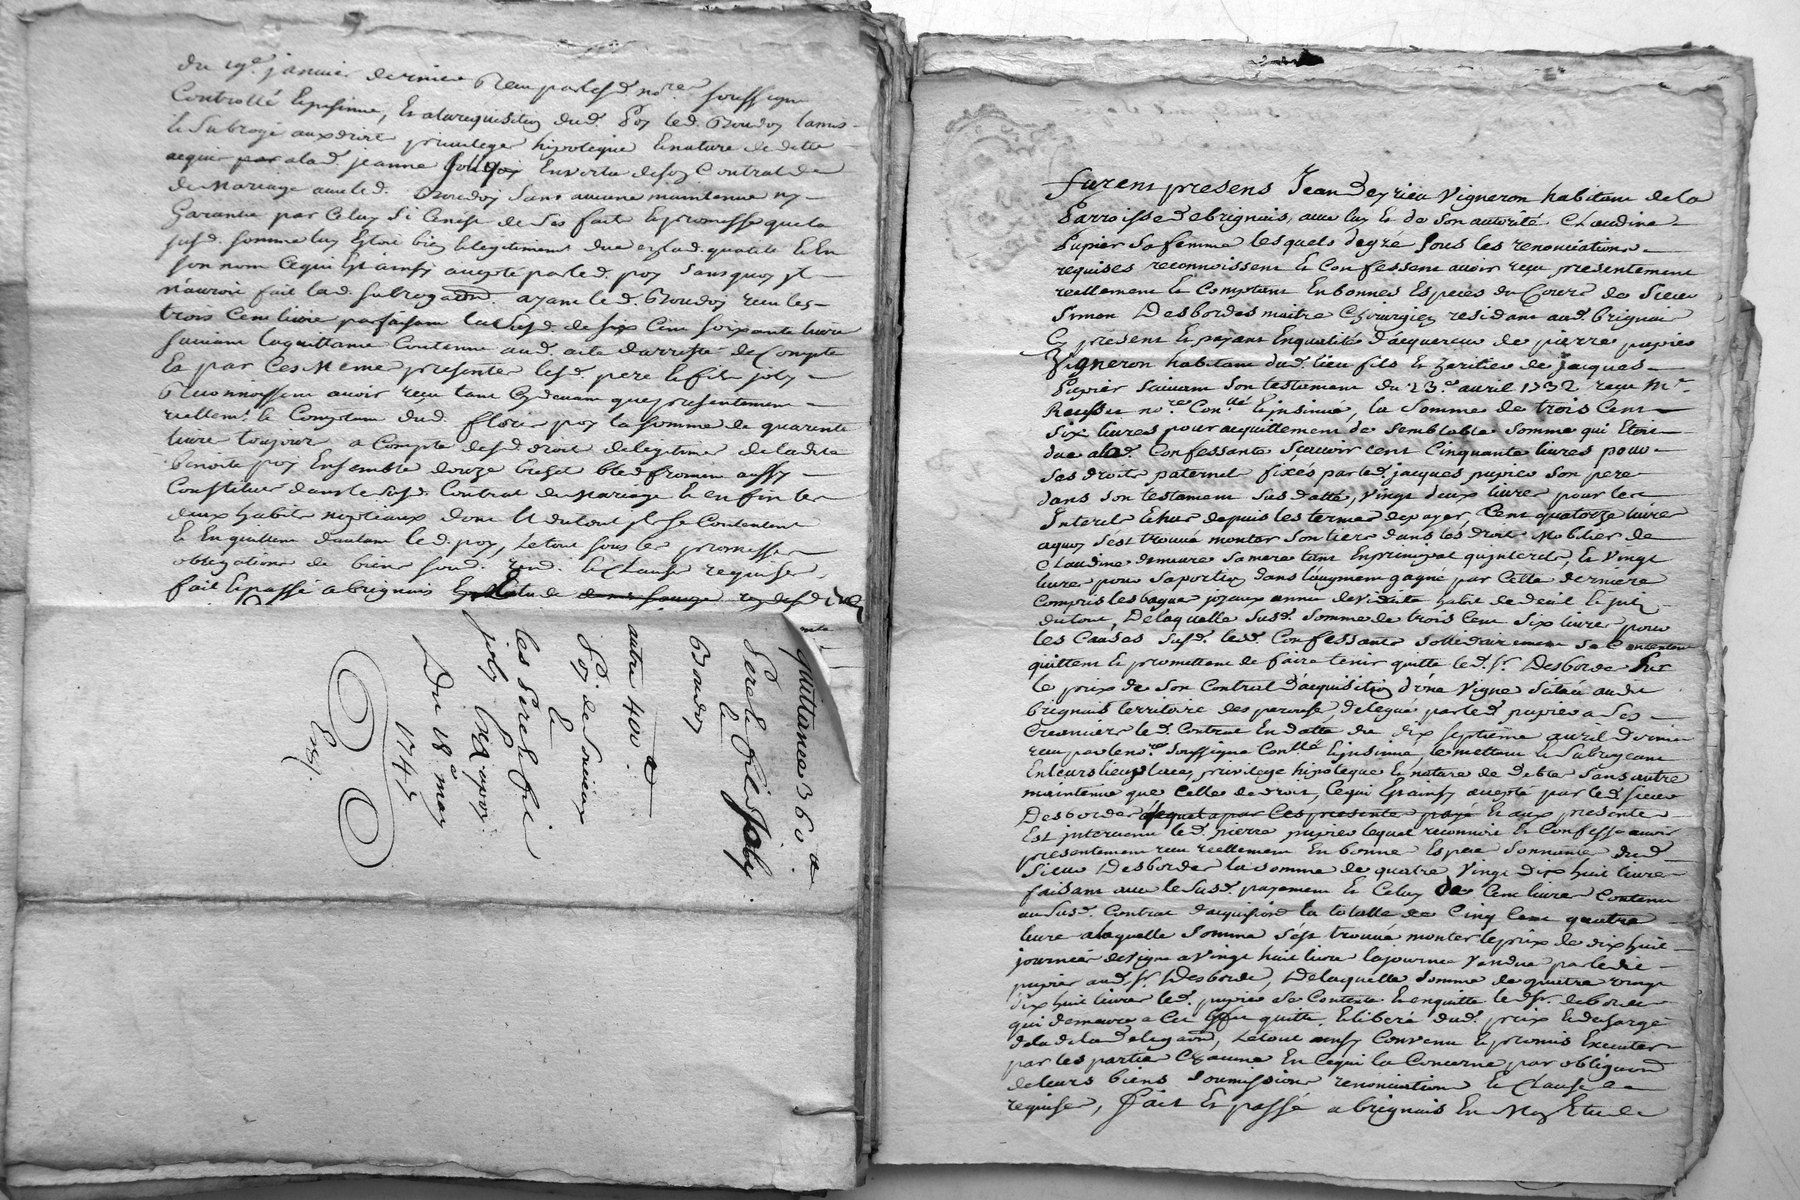 du 19e janvier dernier Receu par led. nore. soussigné
Controllé Et insinué, Et a la requisition dud. Poy led. Boudoy
le subrogé aux droit privileges hipoteque Et nature de dette
acquis a lad. jeanne En vertu de son Contrat de
de Mariage avec led. Boudoy Sans aucune maintenue ny
Garantie par Celuy Si Cenest de Ses fait Et promesse que la
susd. somme luy Estoit bien Et legitimement due Et En
son nom Ce qui Est ainsy accepté par led. poy Sans quoy Il
n'auroit fait lad. subrogaon. ayant led. Boudoy receu les
trois Cent livres parfaisant de six Cent soixante livres
suivant la quittance Contenue aud. acte d'arresté de Compte
Et par Ces Meme presentes lesd. pere Et fils joly
Reconnoissent avoir receu tant Cy devant que presentement
reellemt. Et Comptant dud. poy la somme de quarente
livre toujour a Compte desd. droit de legitime de ladite
benoite poy Ensemble douze bichet bled froment aussy
Constitués dans le susd. Contrat de Mariage Et en fin les
deux habits nuptiaux dont Et du tout Ils se Contentent
Et En quittent d'autant led. poy, Le tout sous les promesses
obligations de biens soud. rend. Et Clauses requises,
fait Et passé a brignais Etude
quittance 360 #
Pere Et fils Joly
Et
Boudoy
autre 400 #
Poy de Soucieu
Et
les pere Et fils
joly Et poy
Du 18e may
1745
Exp
furent presens Jean Deyrieu Vigneron habitant de la
Parroisse de brignais, avec luy Et de son autorité Claudine
Pupier sa femme lesquels de gré sous les renonciations
requises reconnoissent Et Confessent avoir receu presentement
reellement Et Comptant En bonnes Especes du Cours de Sieur
Simon Desbordes maitre Chirurgien residant aud. brignais
Cy present Et payant En qualité d'acquereur de pierre pupier
Vigneron habitant dud. lieu fils Et heritier de jacques
Pupier suivant son testament du 23e. avril 1732 receu Me.
nore. Conllé. Et insinué, la somme de trois Cent
Six livres pour acquittement de semblable somme qui Etoit
due alad. Confessante Scavoir cent Cinquante livres pour
ses droits paternel fixés par led. jacques pupier son pere
dans son testament sus datté, vingt deux livres pour les
Interets Echus depuis les termes de payer, Cent quatorze livres
a quoy s'est trouvé monter son tiers dans les droits Mobilier de
Claudine demeure sa mere tant En principal qu'interets, Et vingt
livre pour sa portion dans l'augment gagné par Cette derniere
Compris les bague joyaux année de viduité habit de deuil Et
du tout, De laquelle susd. somme de trois Cent six livres pour
les Causes susd. lesd. Confessants sollidairement se Contentent
quittent Et promettent de faire tenir quitte led. sr. Desbordes sur
le prix de son Contrat d'acquisition d'une Vigne scituée aud.
brignais territoire des, deleguée par led. pupier a ses
Creanciers led. Contrat En datte du dix septieme avril dernier
receu par le nore. soussigné Conllé. Et insinué, le mettant Et Subrogeant
En leurs lieu place, privilege hipoteque Et nature de debte sans autre
maintenue que celle de droit, Ce qui Est ainsy accepté par led. sieur
Desbordes lequel a par Ces presentes payé Et aux presentes
Est intervenu led. pierre pupier lequel reconnoit Et Confesse avoir
presentement receu reellement En bonne Espece sonnante dud.
sieur Desbordes la somme de quatre vingt dix huit livres
faisant avec le susd. payement Et Celuy de Cent livres Contenu
au susd. Contrat d'acquisition la totalle de Cinq Cent quatre
livre a laquelle somme s'est trouvé monter le prix de dix huit
journées de vigne a vingt huit livre la journée vendue par ledit
pupier aud. sr. Desbordes, De laquelle somme de quatre vingt
dix huit livres led. pupier se Contente Et en quitte led. sr. desbordes
qui demeure a Cet Effet quitte Et liberé dud. prix Et dechargé
de la delegaon, Le tout ainsy Convenu Et promis Executer
par les parties Chacune En Ce qui la Concerne par obligaon
de leurs biens soumissions renonciations Et Clauses
requises, Fait Et passé a brignais En Mon Etude